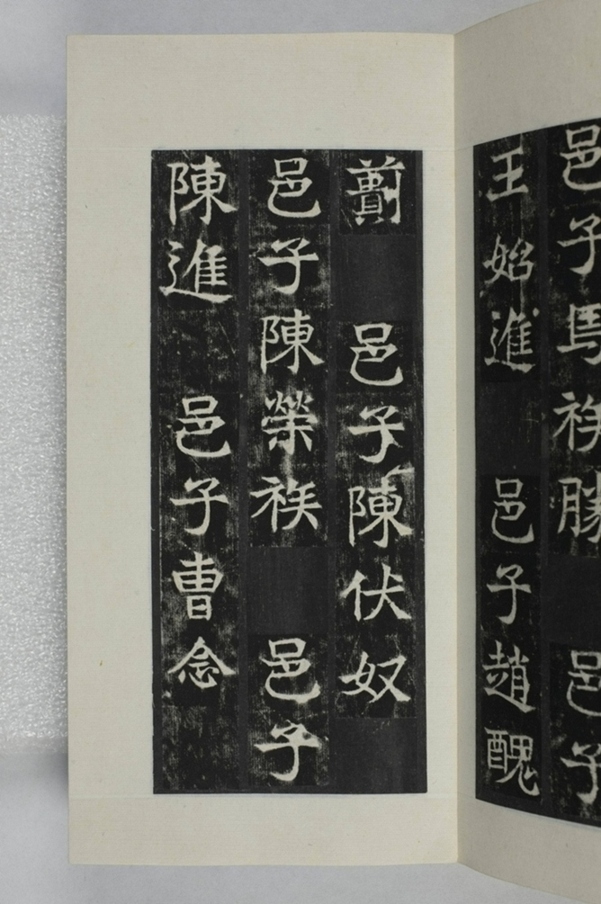 邑子馬族勝 邑子
王始進 邑子趙醜
邑子陳伏奴
邑子陳榮族 邑子
陳進 邑子曹念